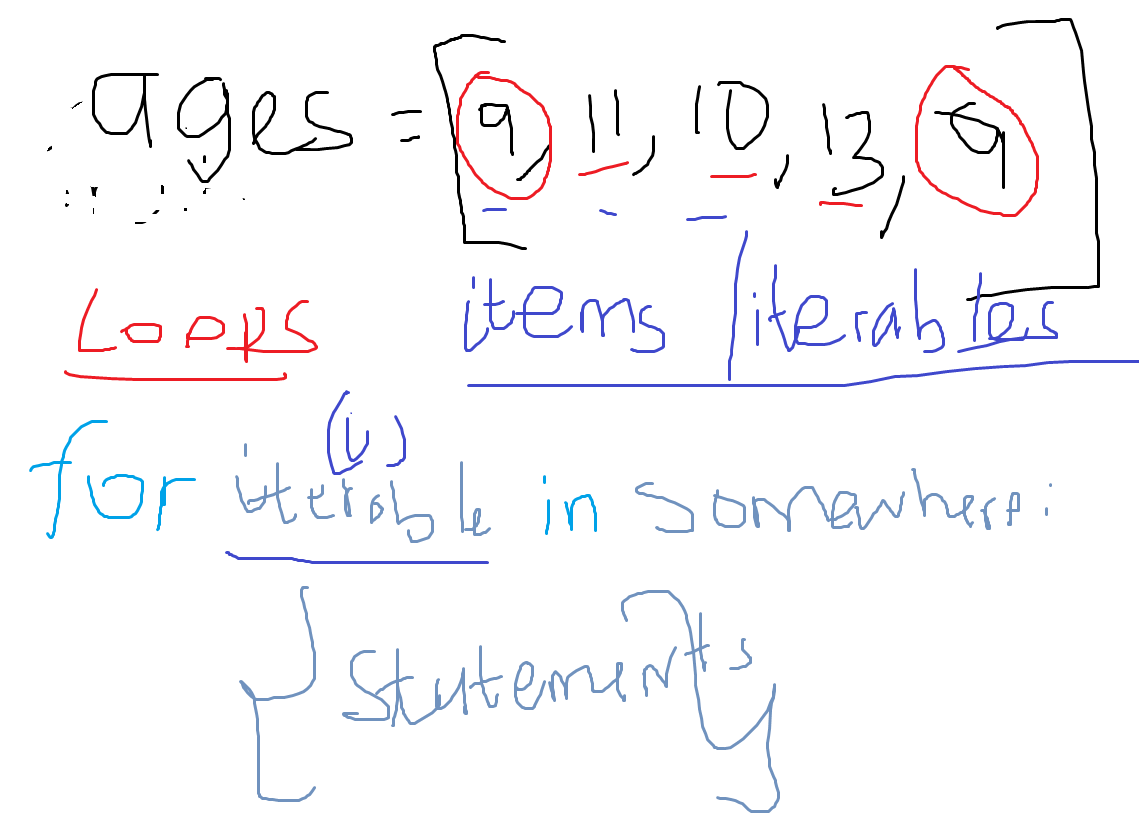 ages = [9, 11, 10, 13, 9]
Loops items / iterables
(i)
for iterable in somewhere:
{ statements }